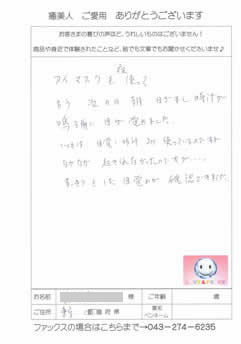 癒美人　ご愛用　ありがとうございます
お客さまの喜びの声ほど、うれしいものはございません！
商品や身近で体験されたことなど、絵でも文章でもお聞かせくださいませ♪
夜
アイマスクを 使って
次の日の 朝 目ざまし時計が
鳴る前に 目が 覚めました。
いつもは 目覚し時計 使っているのですが
なかなか 起きれなかったのですが・・・・
した 目覚めが 確認できました。
お名前
様
ご年齢
歳
ご住所
都道府県
匿名
ペンネーム
ファックスの場合はこちらまで→043-274-6235